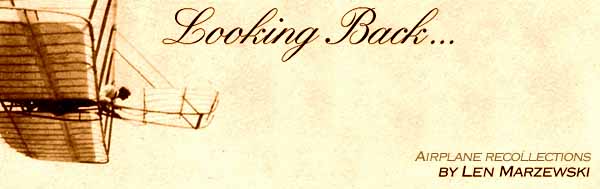 Looking Back...
AIRPLANE RECOLLECTIONS
BY LEN MARZEWSKI